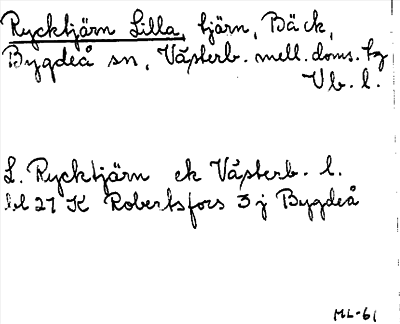 Rycktjärn Lilla, tjärn, Bäck,
Bygdeå sn, Västerb. mell. doms. tg
Vb. l.
L. Rycktjärn ek Västerb. l.
bl 27 K Robertsfors 3 j Bygdeå
ML-61